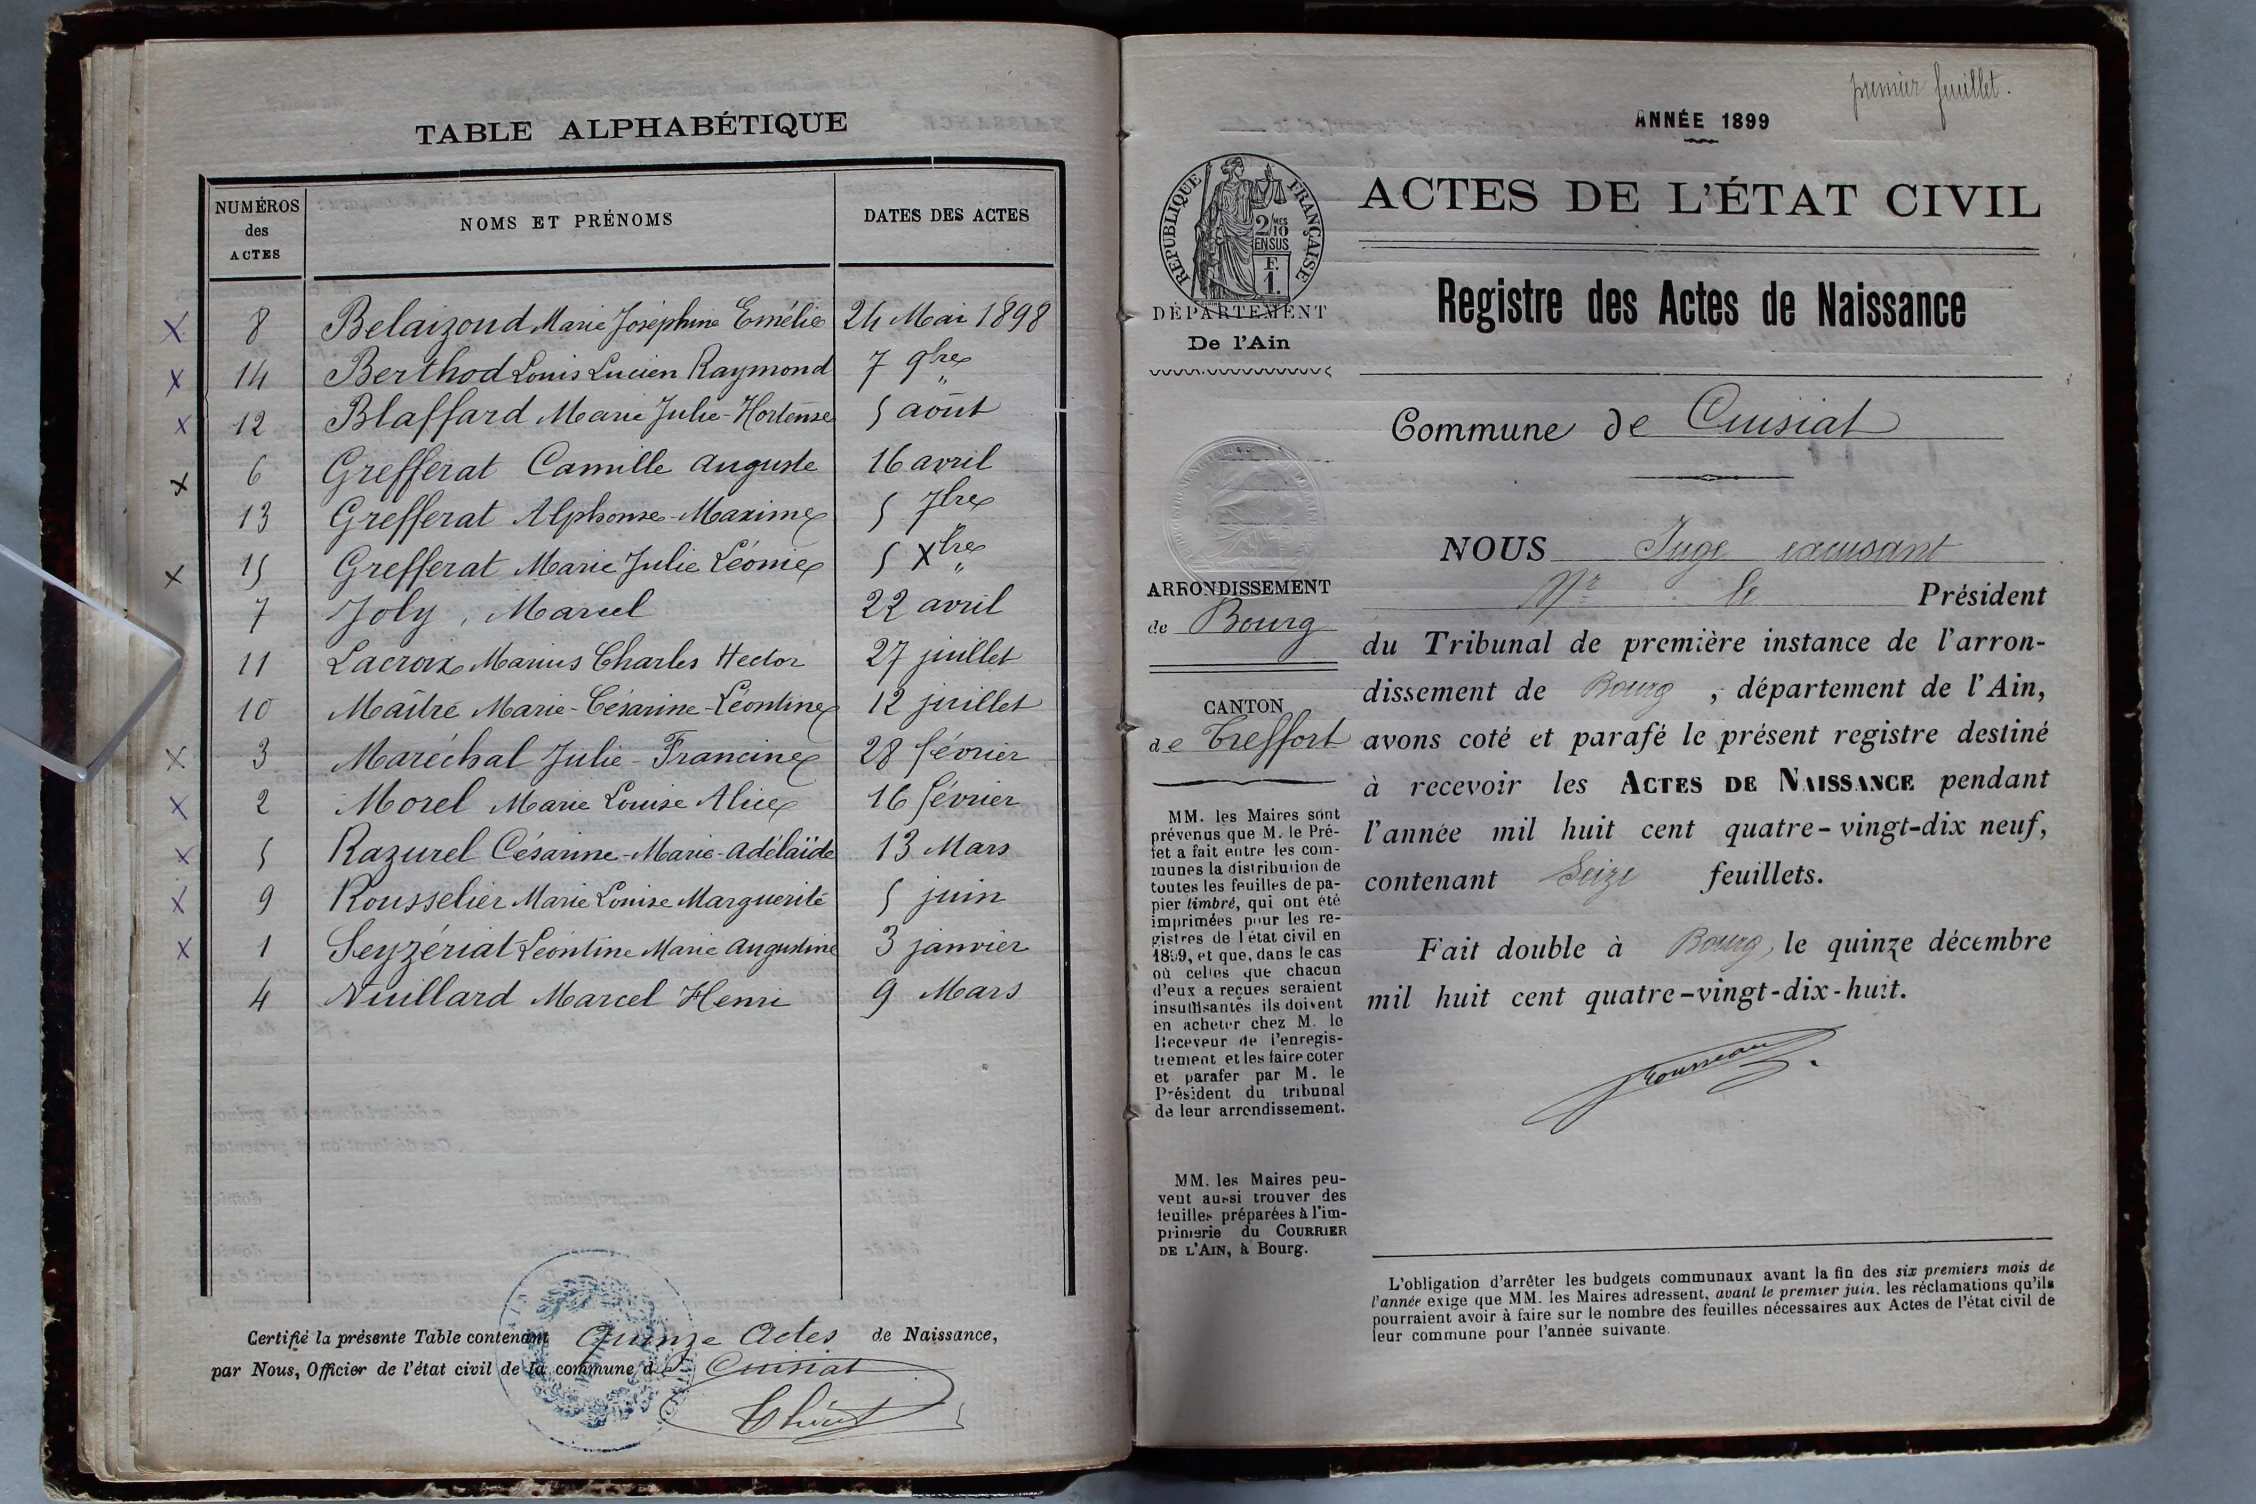 TABLE ALPHABÉTIQUE
NUMÉROS
des
ACTES
NOMS ET PRÉNOMS
DATES DES ACTES
8 Belaizoud Marie Joséphine Emélie 24 Mai 1898
14 Berthod Louis Lucien Raymond 7 9bre "
12 Blaffard Marie Julie-Hortense 5 août
6 Grefferat Camille Auguste 16 avril
13 Grefferat Alphonse-Maxime 5 7bre
15 Grefferat Marie Julie Léonie 5 Xbre "
7 Joly, Marcel 22 avril
11 Lacroix Marius Charles Hector 27 juillet
10 Maître Marie-Césarine-Léontine 12 juillet
3 Maréchal Julie-Francine 28 février
2 Morel Marie Louise Alice 16 février
5 Razurel Césarine-Marie-Adélaïde 13 Mars
9 Rousselier Marie Louise Marguerite 5 juin
1 Seyzériat Léontine Marie Augustine 3 janvier
4 Vuillard Marcel Henri 9 Mars
Certifié la présente Table contenant quinze Actes de Naissance,
par Nous, Officier de l'état civil de la commune de Cuisiat
premier feuillet.
ANNÉE 1899
RÉPUBLIQUE FRANÇAISE
2/10 MES
EN SUS
F.
1.
DÉPARTEMENT
De l'Ain
ACTES DE L'ÉTAT CIVIL
Registre des Actes de Naissance
Commune de Cuisiat
ARRONDISSEMENT
de Bourg
CANTON
de Treffort
MM. les Maires sont
prévenus que M. le Pré-
fet a fait entre les com-
munes la distribution de
toutes les feuilles de pa-
pier timbré, qui ont été
imprimées pour les re-
gistres de l'état civil en
1899, et que, dans le cas
où celles que chacun
d'eux a reçues seraient
insuffisantes ils doivent
en acheter chez M. le
Receveur de l'enregis-
trement et les faire coter
et parafer par M. le
Président du tribunal
de leur arrondissement.
MM. les Maires peu-
vent aussi trouver des
feuilles préparées à l'im-
primerie du COURRIER
DE L'AIN, à Bourg.
NOUS Juge excusant
Mr le Président
du Tribunal de première instance de l'arron-
dissement de Bourg, département de l'Ain,
avons coté et parafé le présent registre destiné
à recevoir les ACTES DE NAISSANCE pendant
l'année mil huit cent quatre-vingt-dix neuf,
contenant Seize feuillets.
Fait double à Bourg, le quinze décembre
mil huit cent quatre-vingt-dix-huit.
L'obligation d'arrêter les budgets communaux avant la fin des six premiers mois de
l'année exige que MM. les Maires adressent, avant le premier juin, les réclamations qu'ils
pourraient avoir à faire sur le nombre des feuilles nécessaires aux Actes de l'état civil de
leur commune pour l'année suivante.